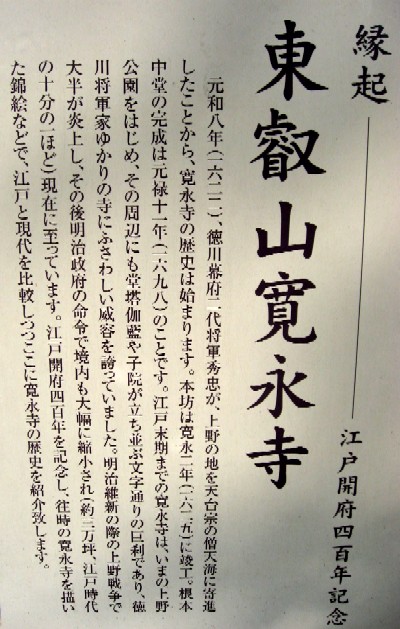 縁起
東叡山寛永寺
江戸開府四百年記念
元和八年（一六二二）、徳川幕府二代将軍秀忠が、上野の地を天台宗の僧天海に寄進
したことから、寛永寺の歴史は始まります。本坊は寛永二年（一六二五）に竣工。根本
中堂の完成は元禄十一年（一六九八）のことです。江戸末期までの寛永寺は、いまの上野
公園をはじめ、その周辺にも堂塔伽藍や子院が立ち並ぶ文字通りの巨刹であり、徳
川将軍家ゆかりの寺にふさわしい威容を誇っていました。明治維新の際の上野戦争で
大半が炎上し、その後明治政府の命令で境内も大幅に縮小され（約三万坪、江戸時代
の十分の一ほど）現在に至っています。江戸開府四百年を記念し、往時の寛永寺を描い
た錦絵などで、江戸と現代を比較しつつここに寛永寺の歴史を紹介致します。